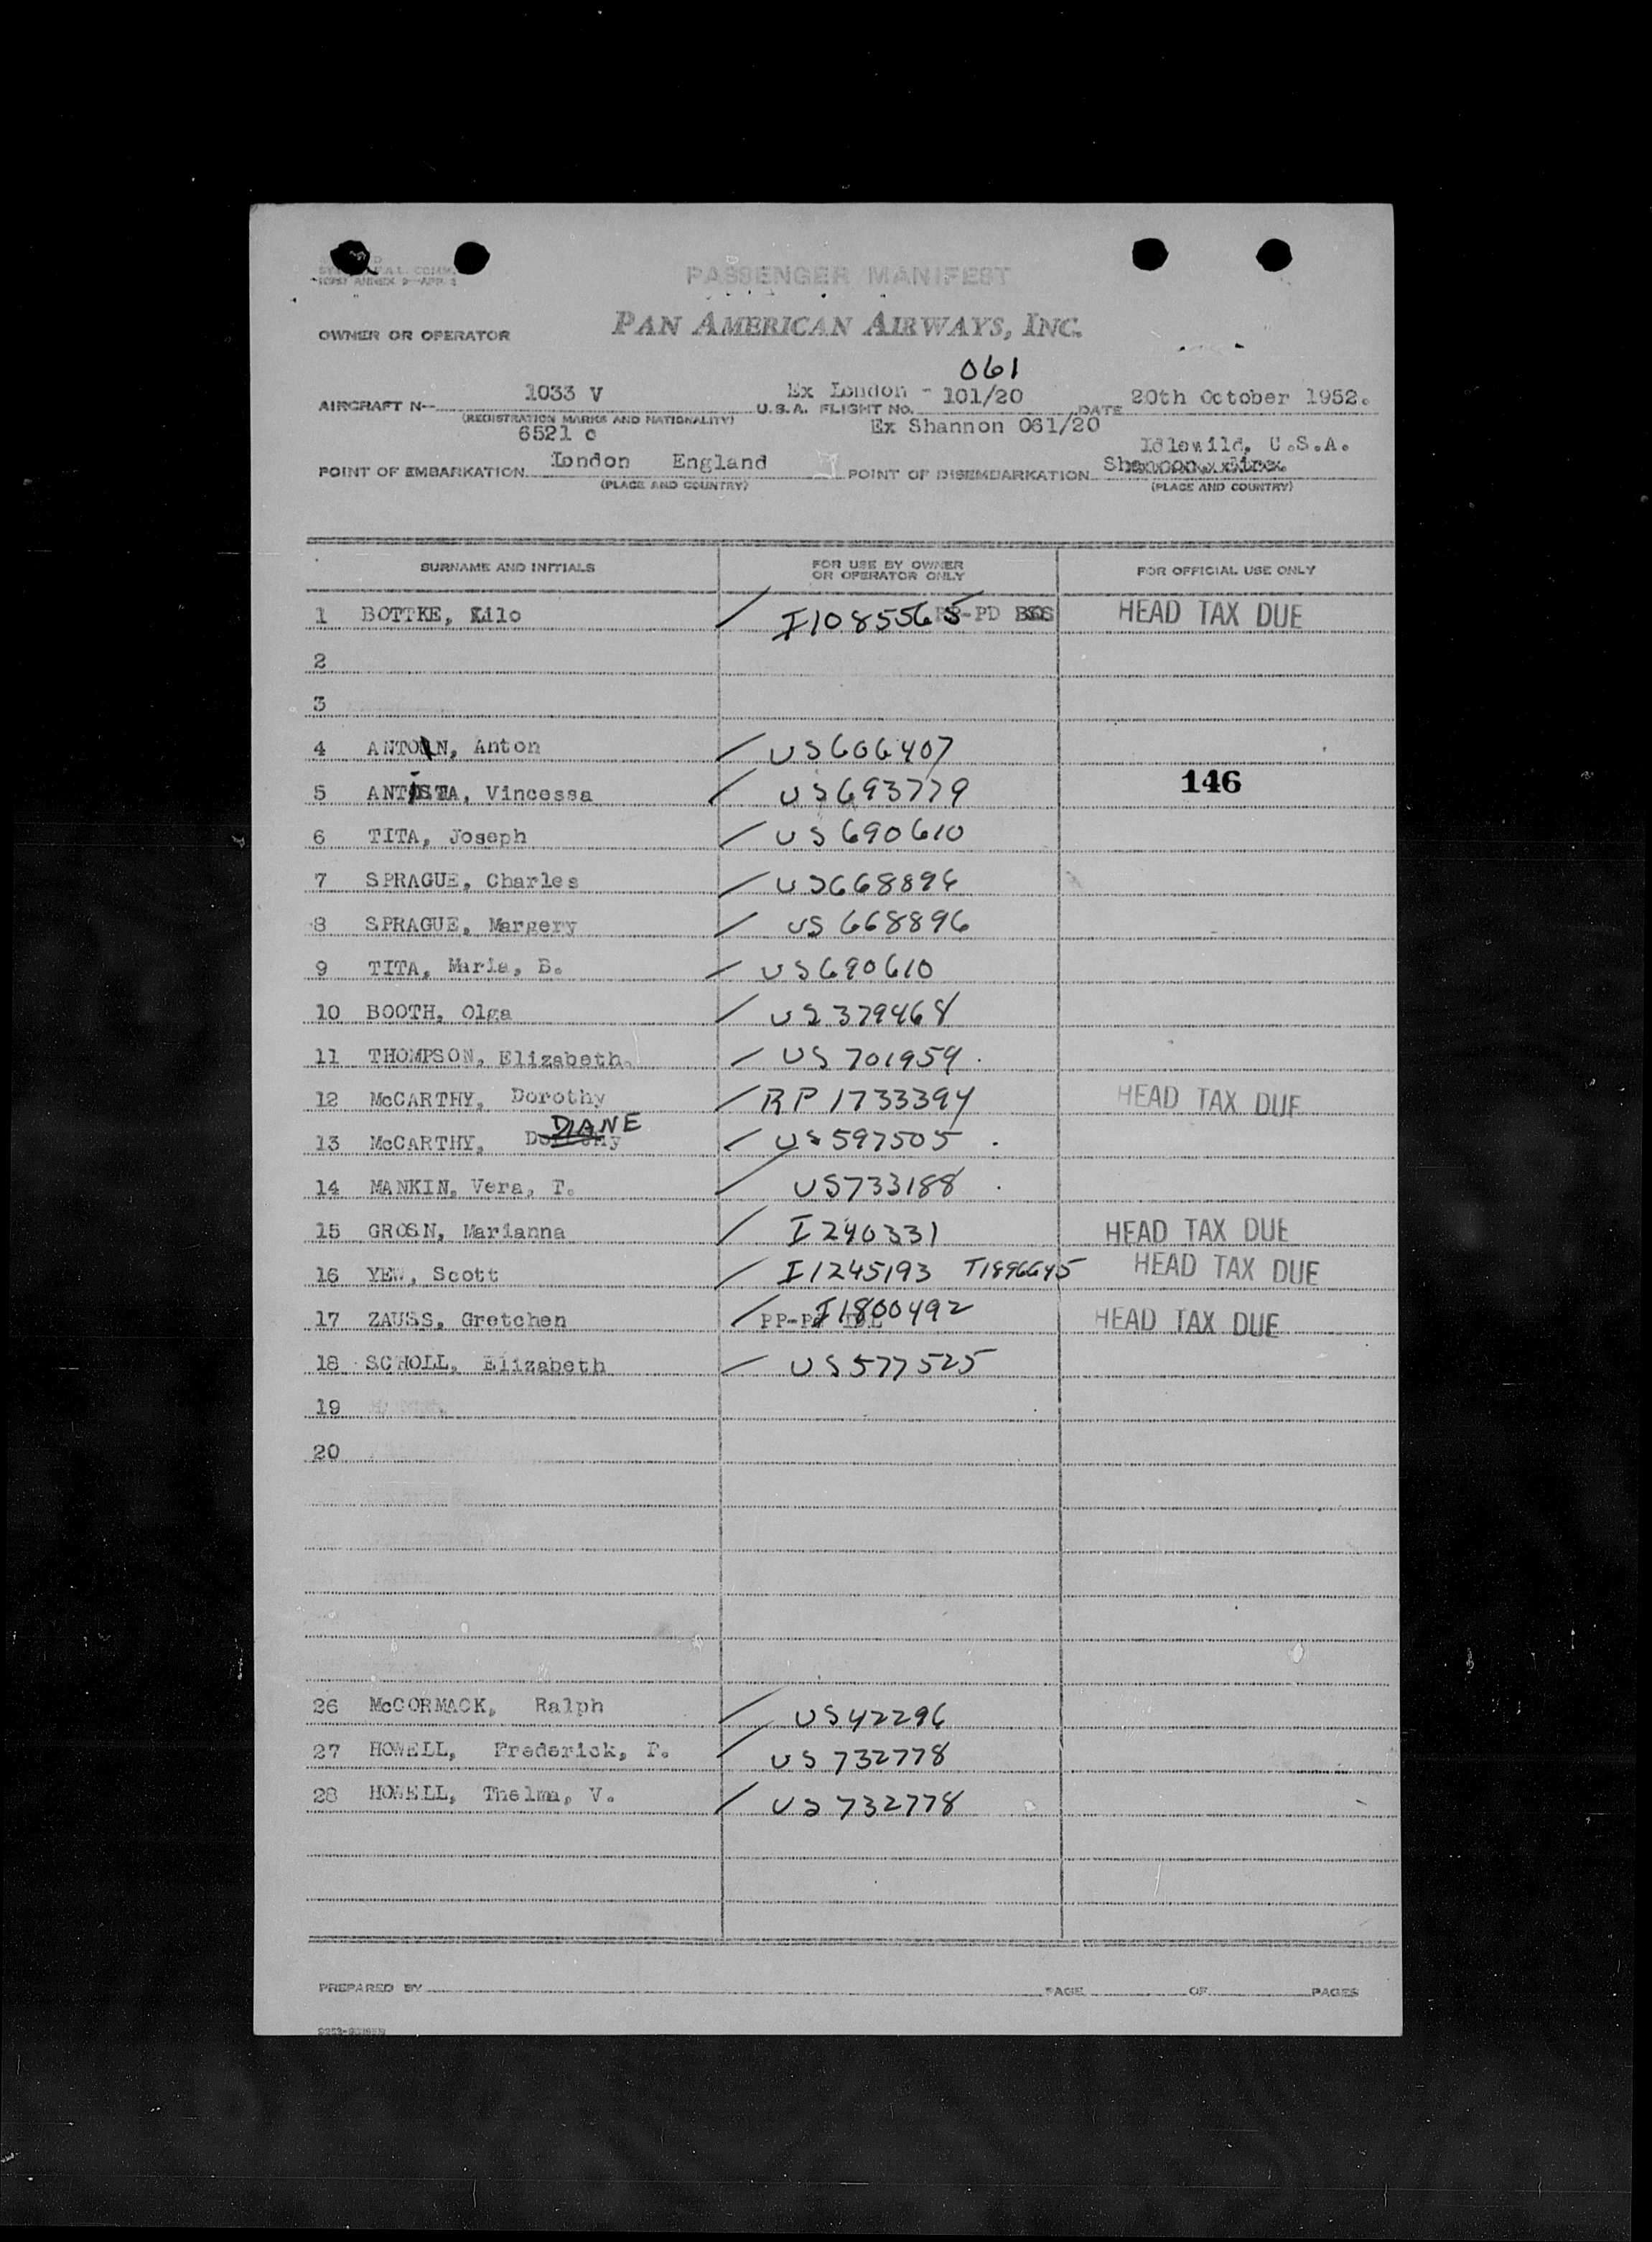 PASSENGER MANIFEST
OWNER OR OPERATOR PAN AMERICAN AIRWAYS, INC.
061
AIRCRAFT N- 1033 V Ex London - 101/20 20th October 1952.
(REGISTRATION MARKS AND NATIONALITY) U.S.A. FLIGHT NO. DATE
6521 c Ex Shannon 061/20
Idlewild, U.S.A.
POINT OF EMBARKATION London England POINT OF DISEMBARKATION
(PLACE AND COUNTRY) (PLACE AND COUNTRY)
SURNAME AND INITIALS FOR USE BY OWNER OR OPERATOR ONLY FOR OFFICIAL USE ONLY
1 BOTTKE, / I1085565 -PD HEAD TAX DUE
2
3
4 Anton / US606407
5 Vincessa / US693779 146
6 TITA, Joseph / US690610
7 SPRAGUE, Charles / US668896
8 SPRAGUE, Margery / US 668896
9 TITA, Maria, B. / US690610
10 BOOTH, Olga / US379468
11 THOMPSON, Elizabeth. / US 701959
12 McCARTHY, Dorothy / RP 1733394 HEAD TAX DUE
13 McCARTHY, DIANE / US597505
14 MANKIN, Vera, T. / US733188
15 GROSN, Marianna / I240331 HEAD TAX DUE
16 YEW, Scott / I1245193 T1896645 HEAD TAX DUE
17 ZAUSS, Gretchen / I1800492 HEAD TAX DUE
18 SCHOLL, Elizabeth / US577525
19
20
26 McCORMACK, Ralph / US42296
27 HOWELL, Frederick, P. / US732778
28 HOWELL, Thelma, V. / US732778
PREPARED BY PAGE OF PAGES